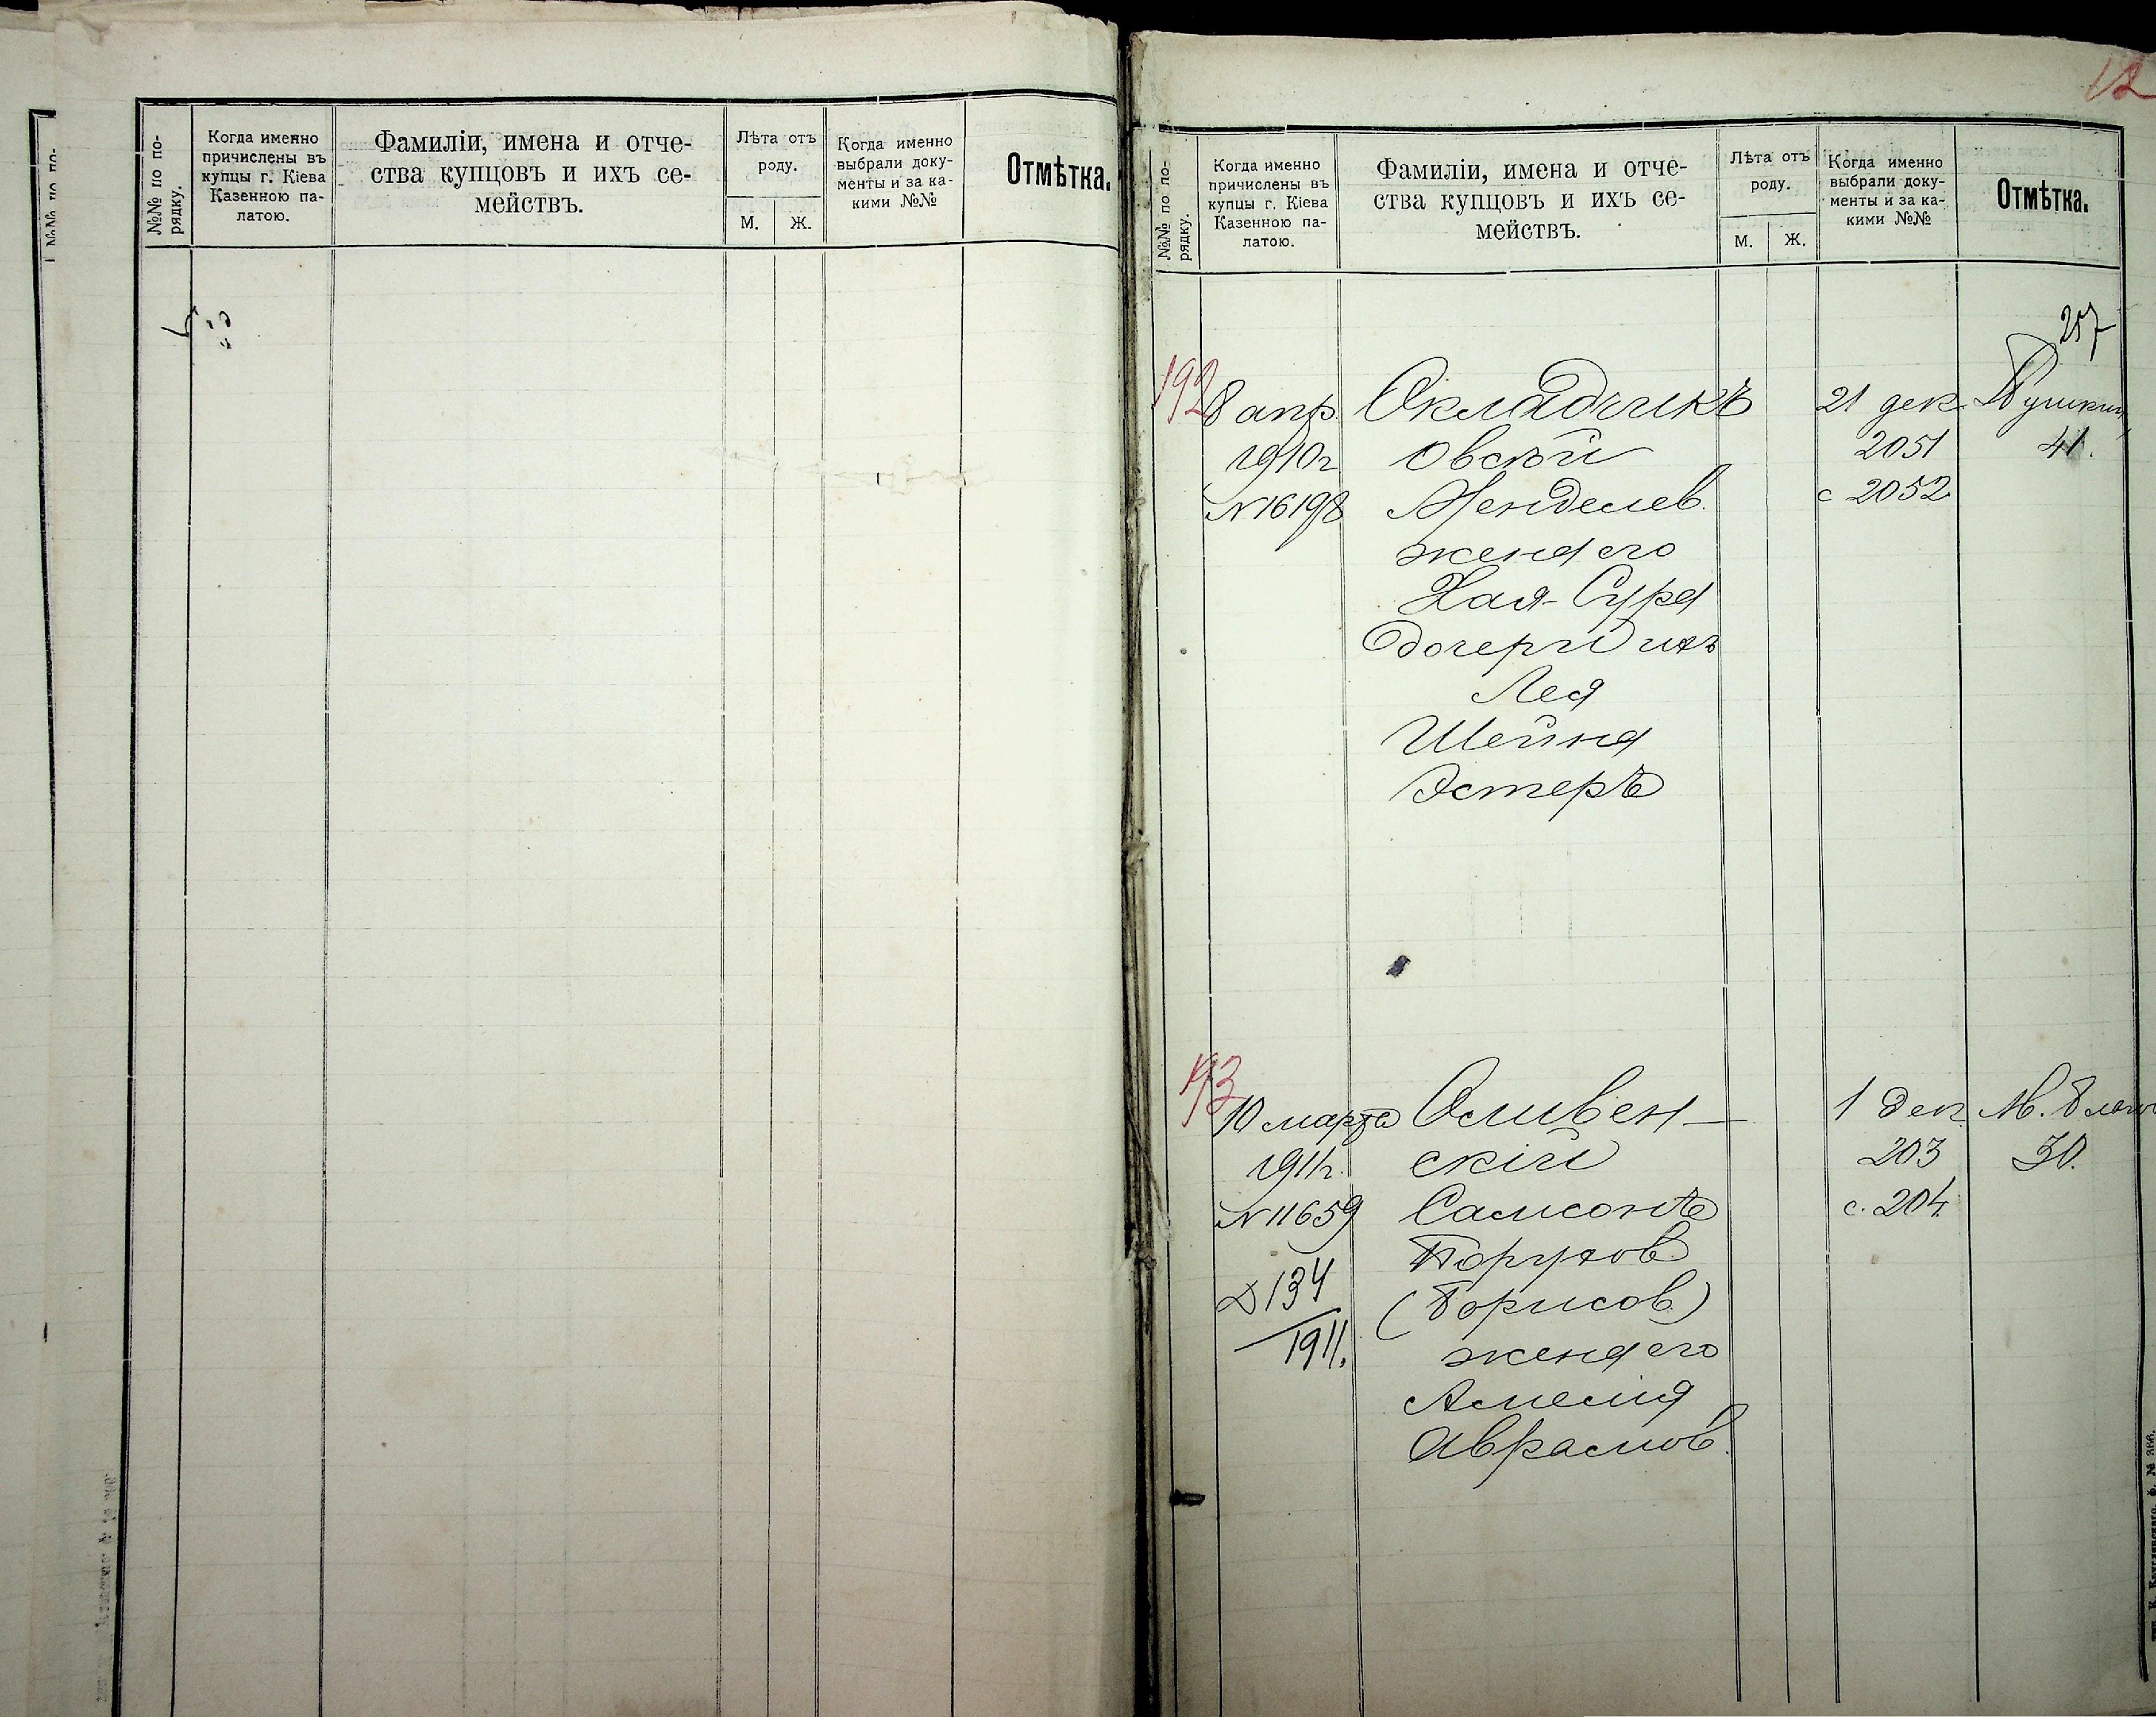 №№ по по-
рядку.
Когда именно
причислены въ
купцы г. Кіева
Казенною па-
латою.
Фамиліи, имена и отче-
ства купцовъ и ихъ се-
мействъ.
Лѣта отъ
роду.
М.
Ж.
Когда именно
выбрали доку-
менты и за ка-
кими №№
Отмѣтка.
12
№№ по по-
рядку.
Когда именно
причислены въ
купцы г. Кіева
Казенною па-
латою.
Фамиліи, имена и отче-
ства купцовъ и ихъ се-
мействъ.
Лѣта отъ
роду.
М.
Ж.
Когда именно
выбрали доку-
менты и за ка-
кими №№
Отмѣтка.
257
192
8 апр.
1910г
N 16198
Окладчик
овской
Менделев.
жена его
Хая-Сура
дочери ихъ
Лея
Шейна
Эстеръ
21 дек.
2051
с 2052
Пушкин,
41.
193
10 марта
1911г.
N 11659
134
1911.
Оливен-
скій
Самсонъ
Борухов
(Борисов)
жена его
Амелія
Аврамов.
1 дек.
203
с. 204
М. Благ
30.